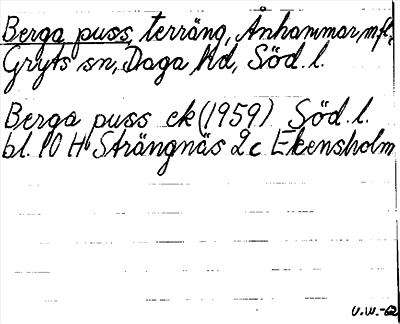 Berga puss, terräng, Anhammar, mfl.,
Gryts sn, Daga hd, Söd. l.
Berga puss ek (1959) Söd. l.
bl. 10 H Strängnäs 2c Ekensholm
U.W.-62